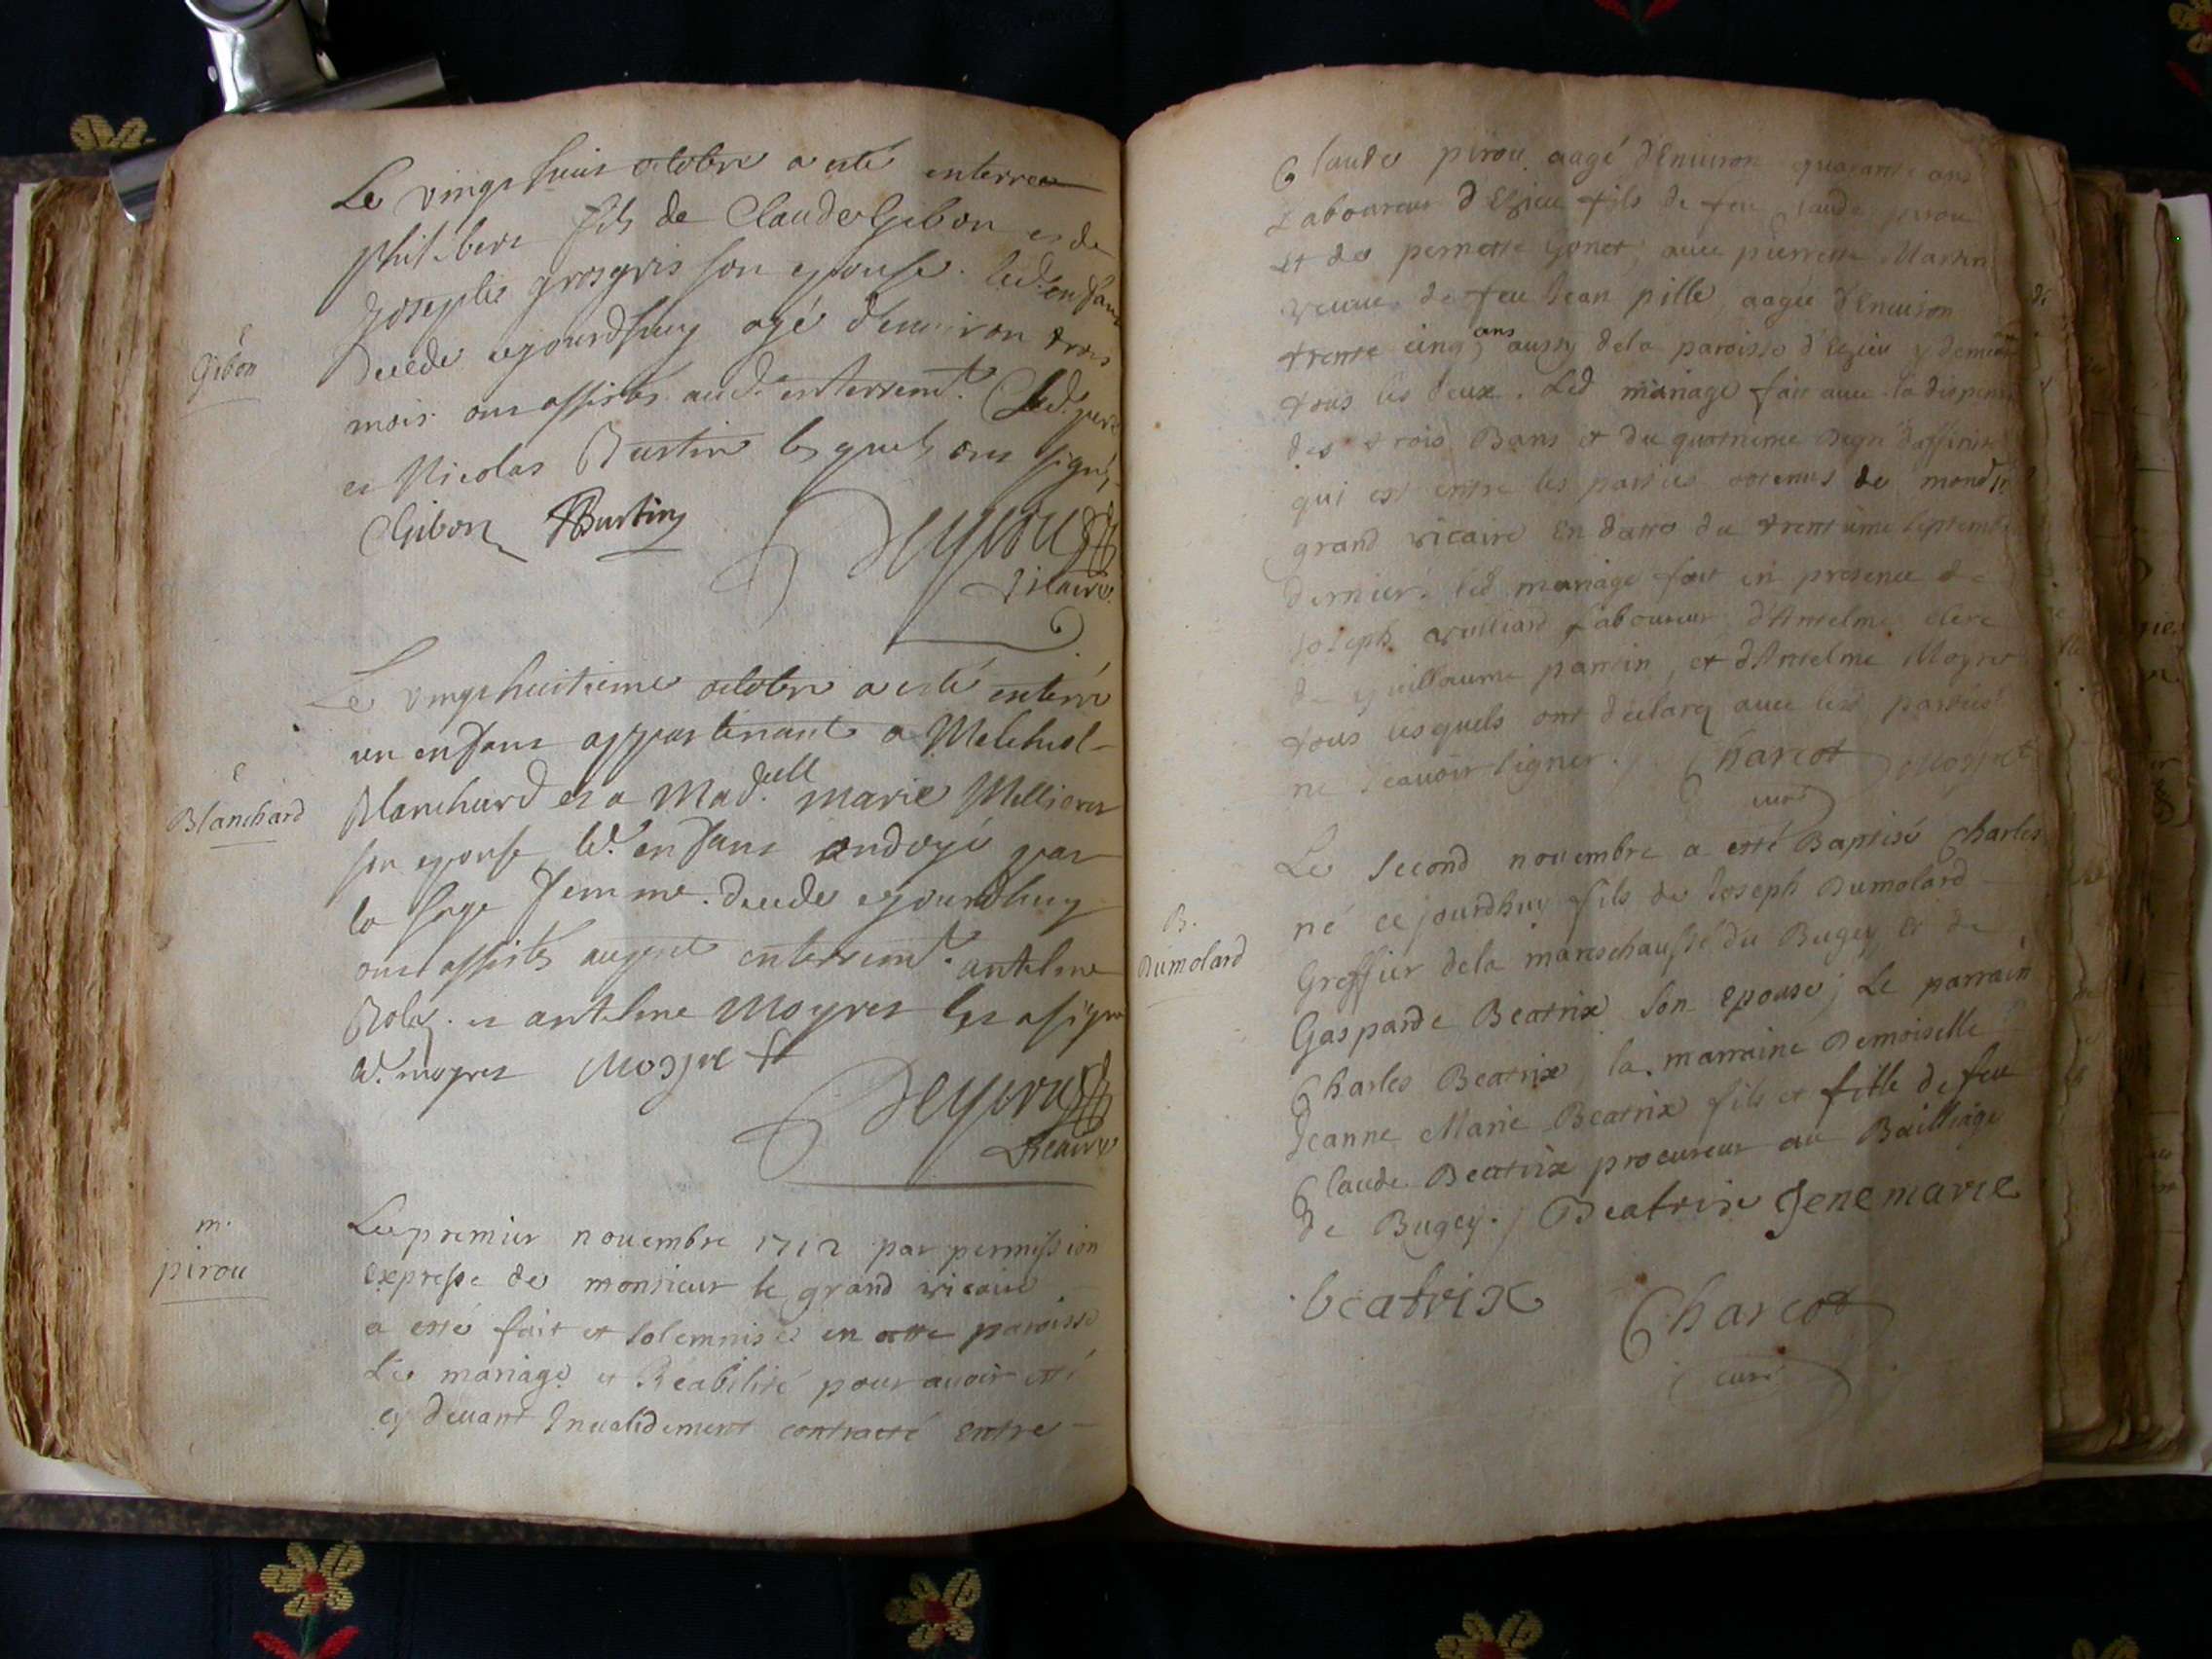 Le vingt huit octobre a esté enterré
philibert fils de Claude Gibon et de
Josephe grosgris son epouse. led. enfant
e
Gibon
decedé cejourdhuy agé d'environ trois
mois. ont assistés aud. enterremt. Led. pere
et Nicolas Burtin lesquels ont signé,
Gibon Burtin
vicaire
Le vingthuitieme octobre a esté enterré
un enfant appartenant a Melchiol
e
Blanchard
Blanchard et a Mad.elle marie Millieret
son epouse, led. enfant ondoyé par
la sage femme. decedé cejourdhuy
ont assistés auquel enterremt. antelme
et antelme Moyret
led. moyret Moyret
vicaire
m.
pirou
Le premier novembre 1712 par permission
expresse de monsieur le grand vicaire
a esté fait et solemnisé en cette paroisse
Le mariage et Reabilité pour avoir esté
cy devant Invalidement contracté entre
Claude pirou aagé d'Environ quarante ans
Laboureur d'Ezieu fils de feu Claude pirou
et de pernette Gonet, avec pierrette Martin
veuve de feu Jean pille, aagée d'Environ
trente cinq ans aussy de la paroisse d'Ezieu y demeurt
tous les deux. Led mariage fait avec la dispense
des trois Bans et du quatrieme degré d'affinité
qui est entre les parties obtenus de mondit sr
grand vicaire En datte du trentieme septembre
dernier. led mariage fait en presence de
Joseph vulliard Laboureur d'Antelme clerc
de guillaume pantin, et d'Antelme Moyret
tous lesquels ont declaré avec lesd parties
ne scavoir signer. Charcot Moyret
curé
Le second novembre a esté Baptisé Charles
né ce jourdhuy fils de Joseph Dumolard
B.
Dumolard
Greffier de la mareschaussé du Bugey et de
Gasparde Beatrix son epouse; Le parrain
Charles Beatrix, la marraine Demoiselle
Jeanne Marie Beatrix fils et fille de feu
Claude Beatrix procureur au Bailliage
de Bugey. / Beatrix Jenemarie
beatrix Charcot
curé